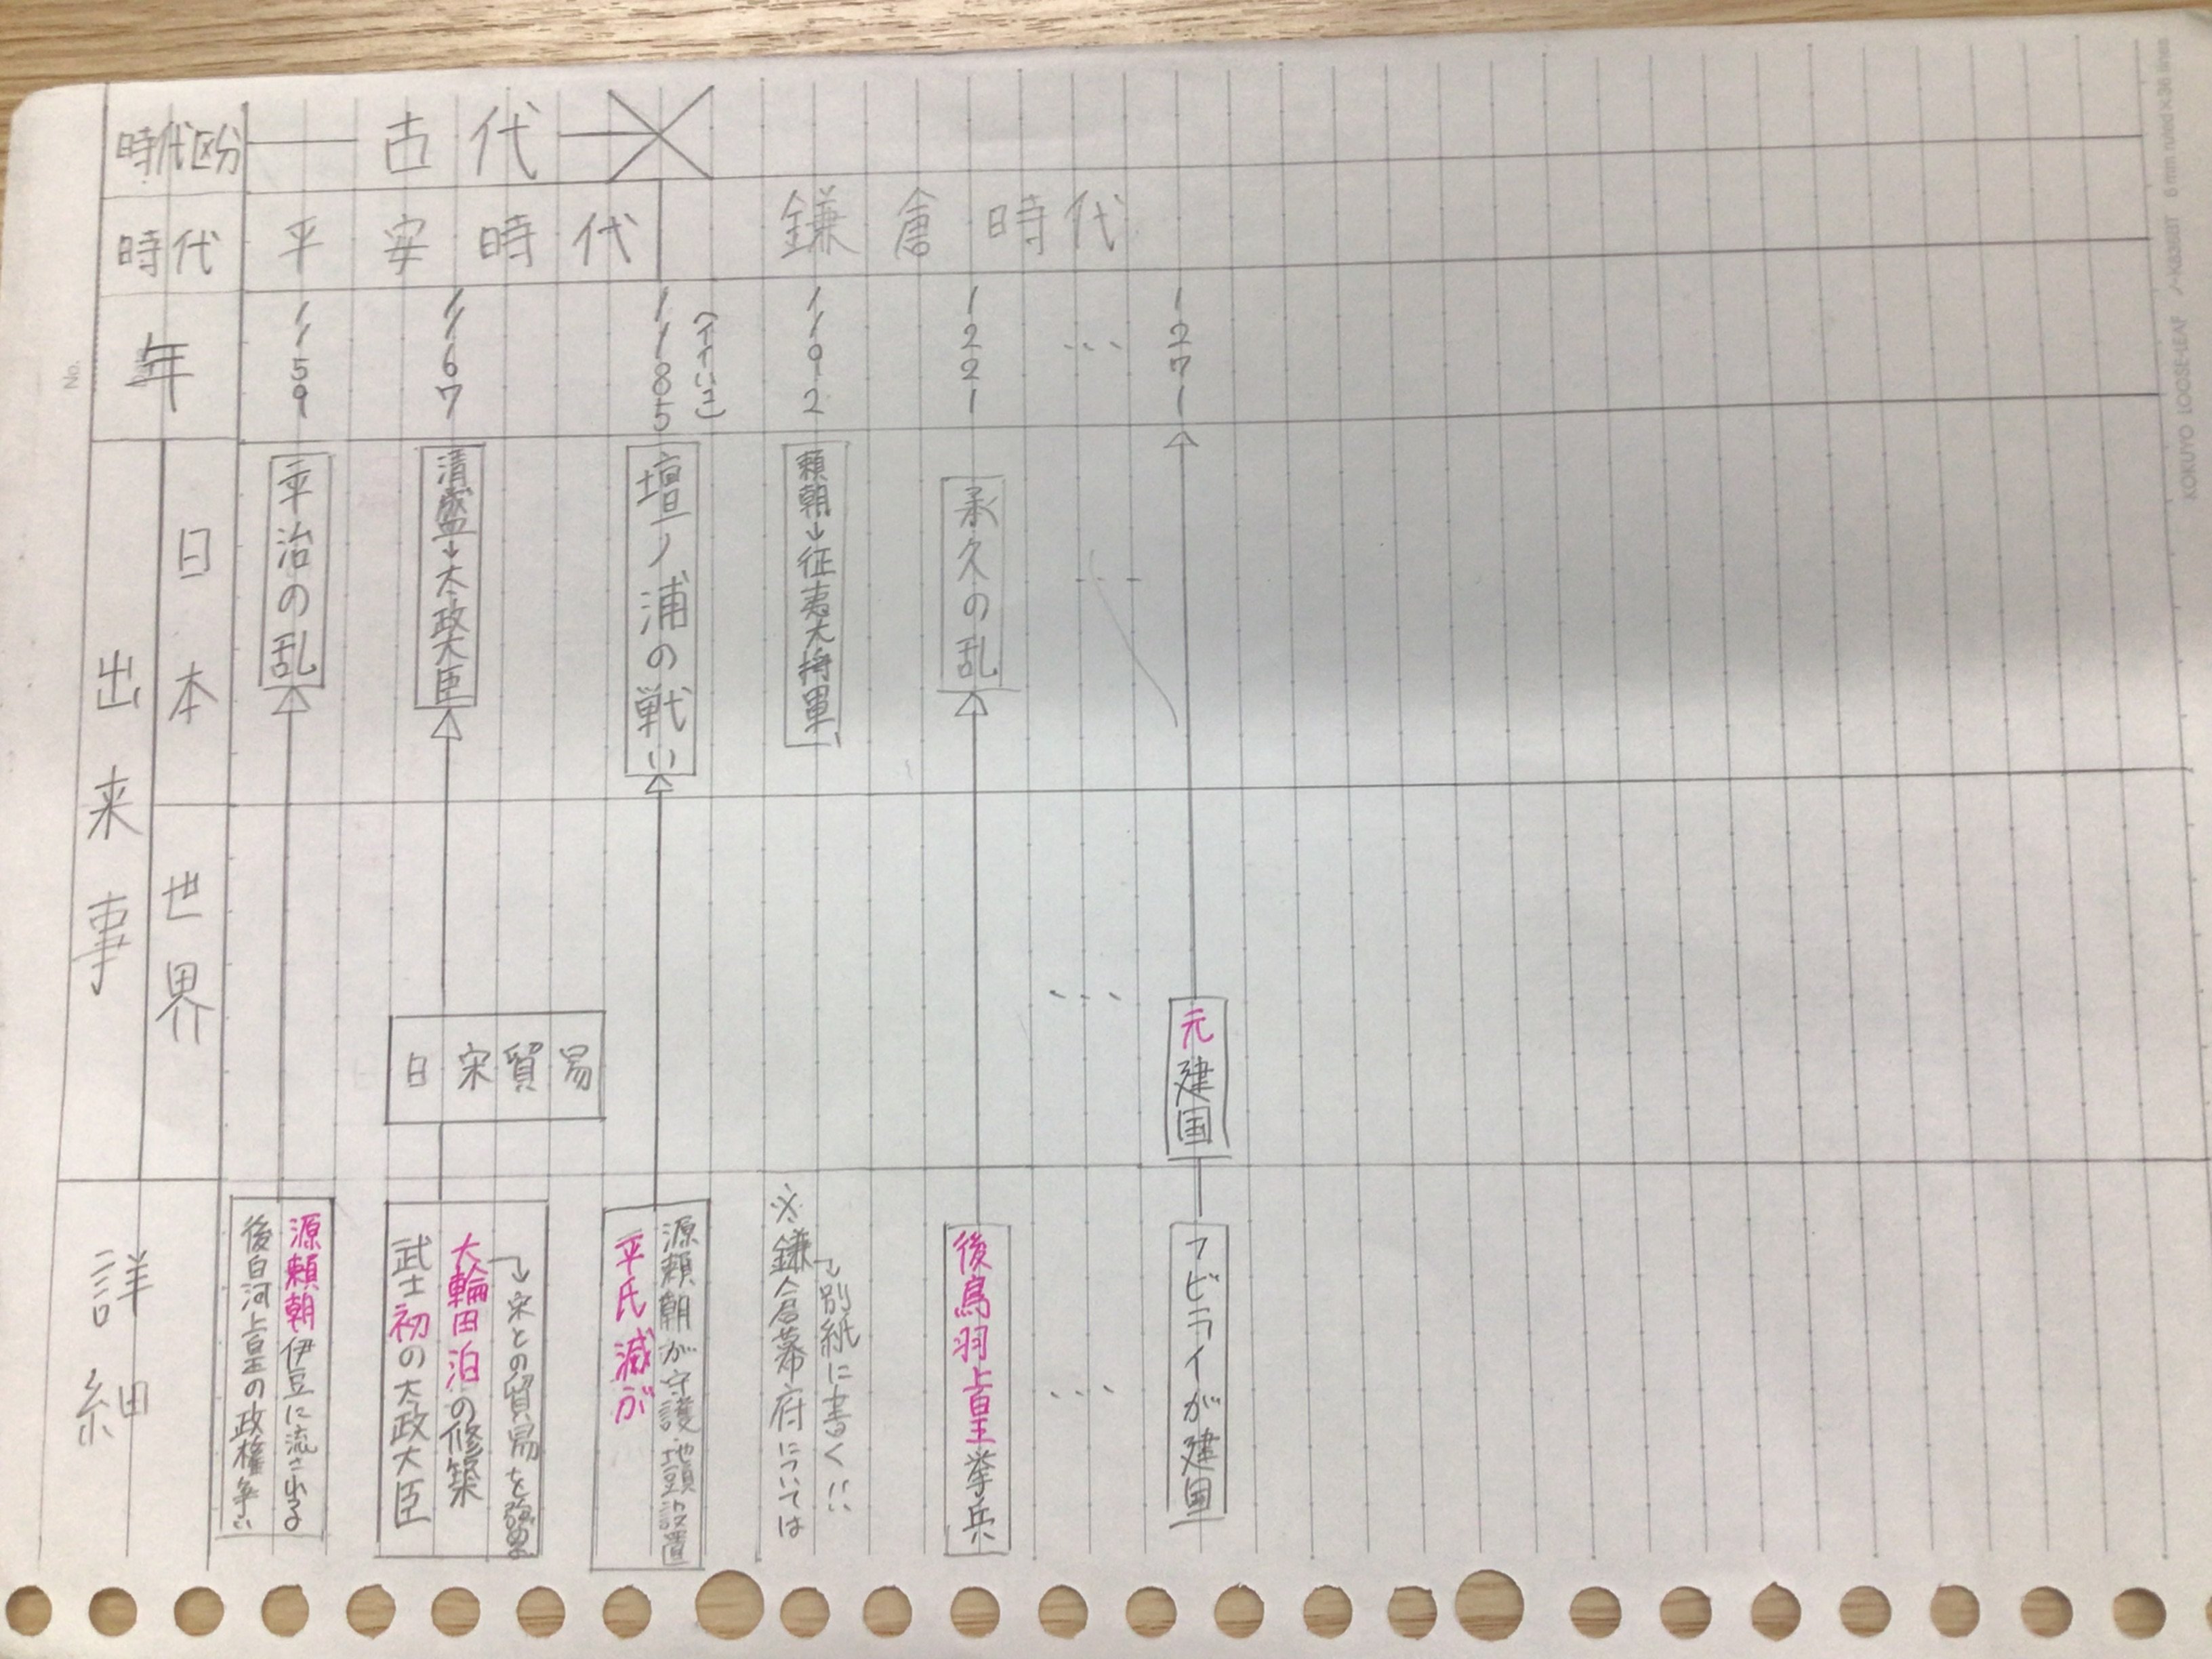 時代区分
古代
時代
平安時代
鎌倉時代
年
1159
1167
1185
1192
1221
…
1271
出来事
日本
平治の乱
清盛→太政大臣
壇ノ浦の戦い
頼朝→征夷大将軍
承久の乱
…
世界
日宋貿易
…
元建国
詳細
源頼朝伊豆に流される
後白河上皇の政権争い
→宋との貿易を
大輪田泊の修築
武士初の太政大臣
源頼朝が守護・地頭設置
平氏滅が
→別紙に書く!!
※鎌倉幕府については
後鳥羽上皇挙兵
…
フビライが建国
No.
KOKUYO LOOSE-LEAF ノ-K836BT 6 mm ruled×36 lines